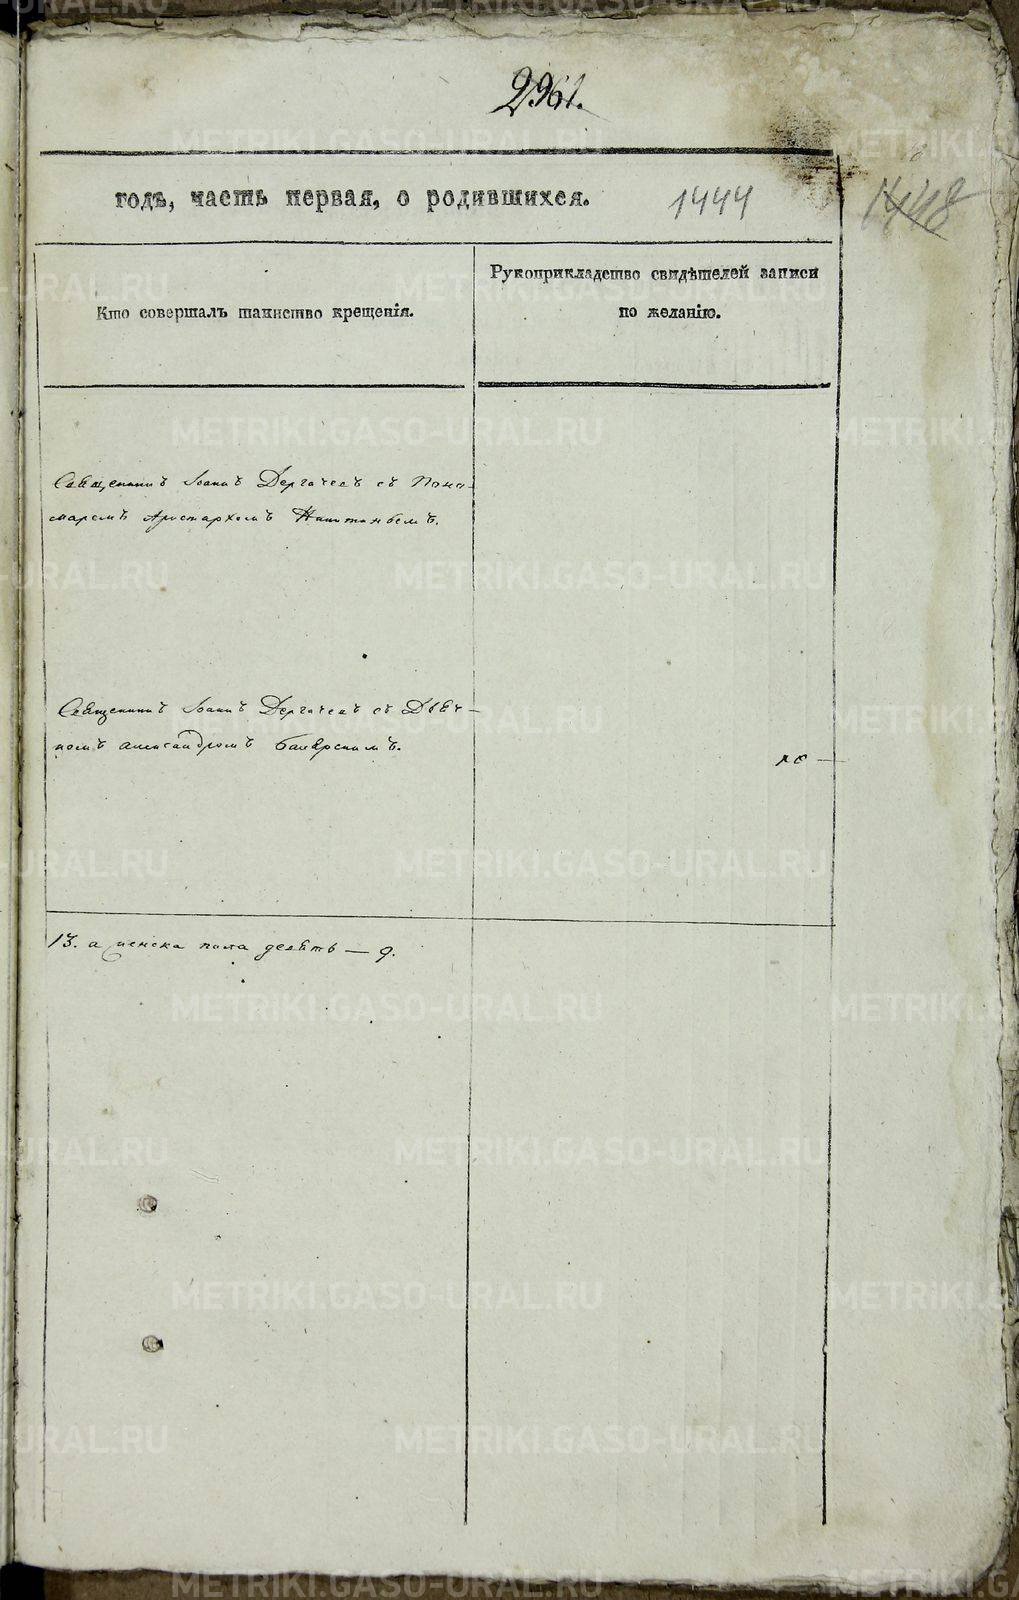 2961.
годъ, часть первая, о родившихся.
1444
1448
Кто совершалъ таинство крещенія.
Рукоприкладство свидѣтелей записи
по желанію.
Священникъ Іоаннъ Дергачевъ съ Пона-
маремъ Аристархомъ
Священникъ Іоаннъ Дергачевъ съ Дьяч-
комъ Александромъ
13. а женска пола девять — 9.
METRIKI.GASO-URAL.RU